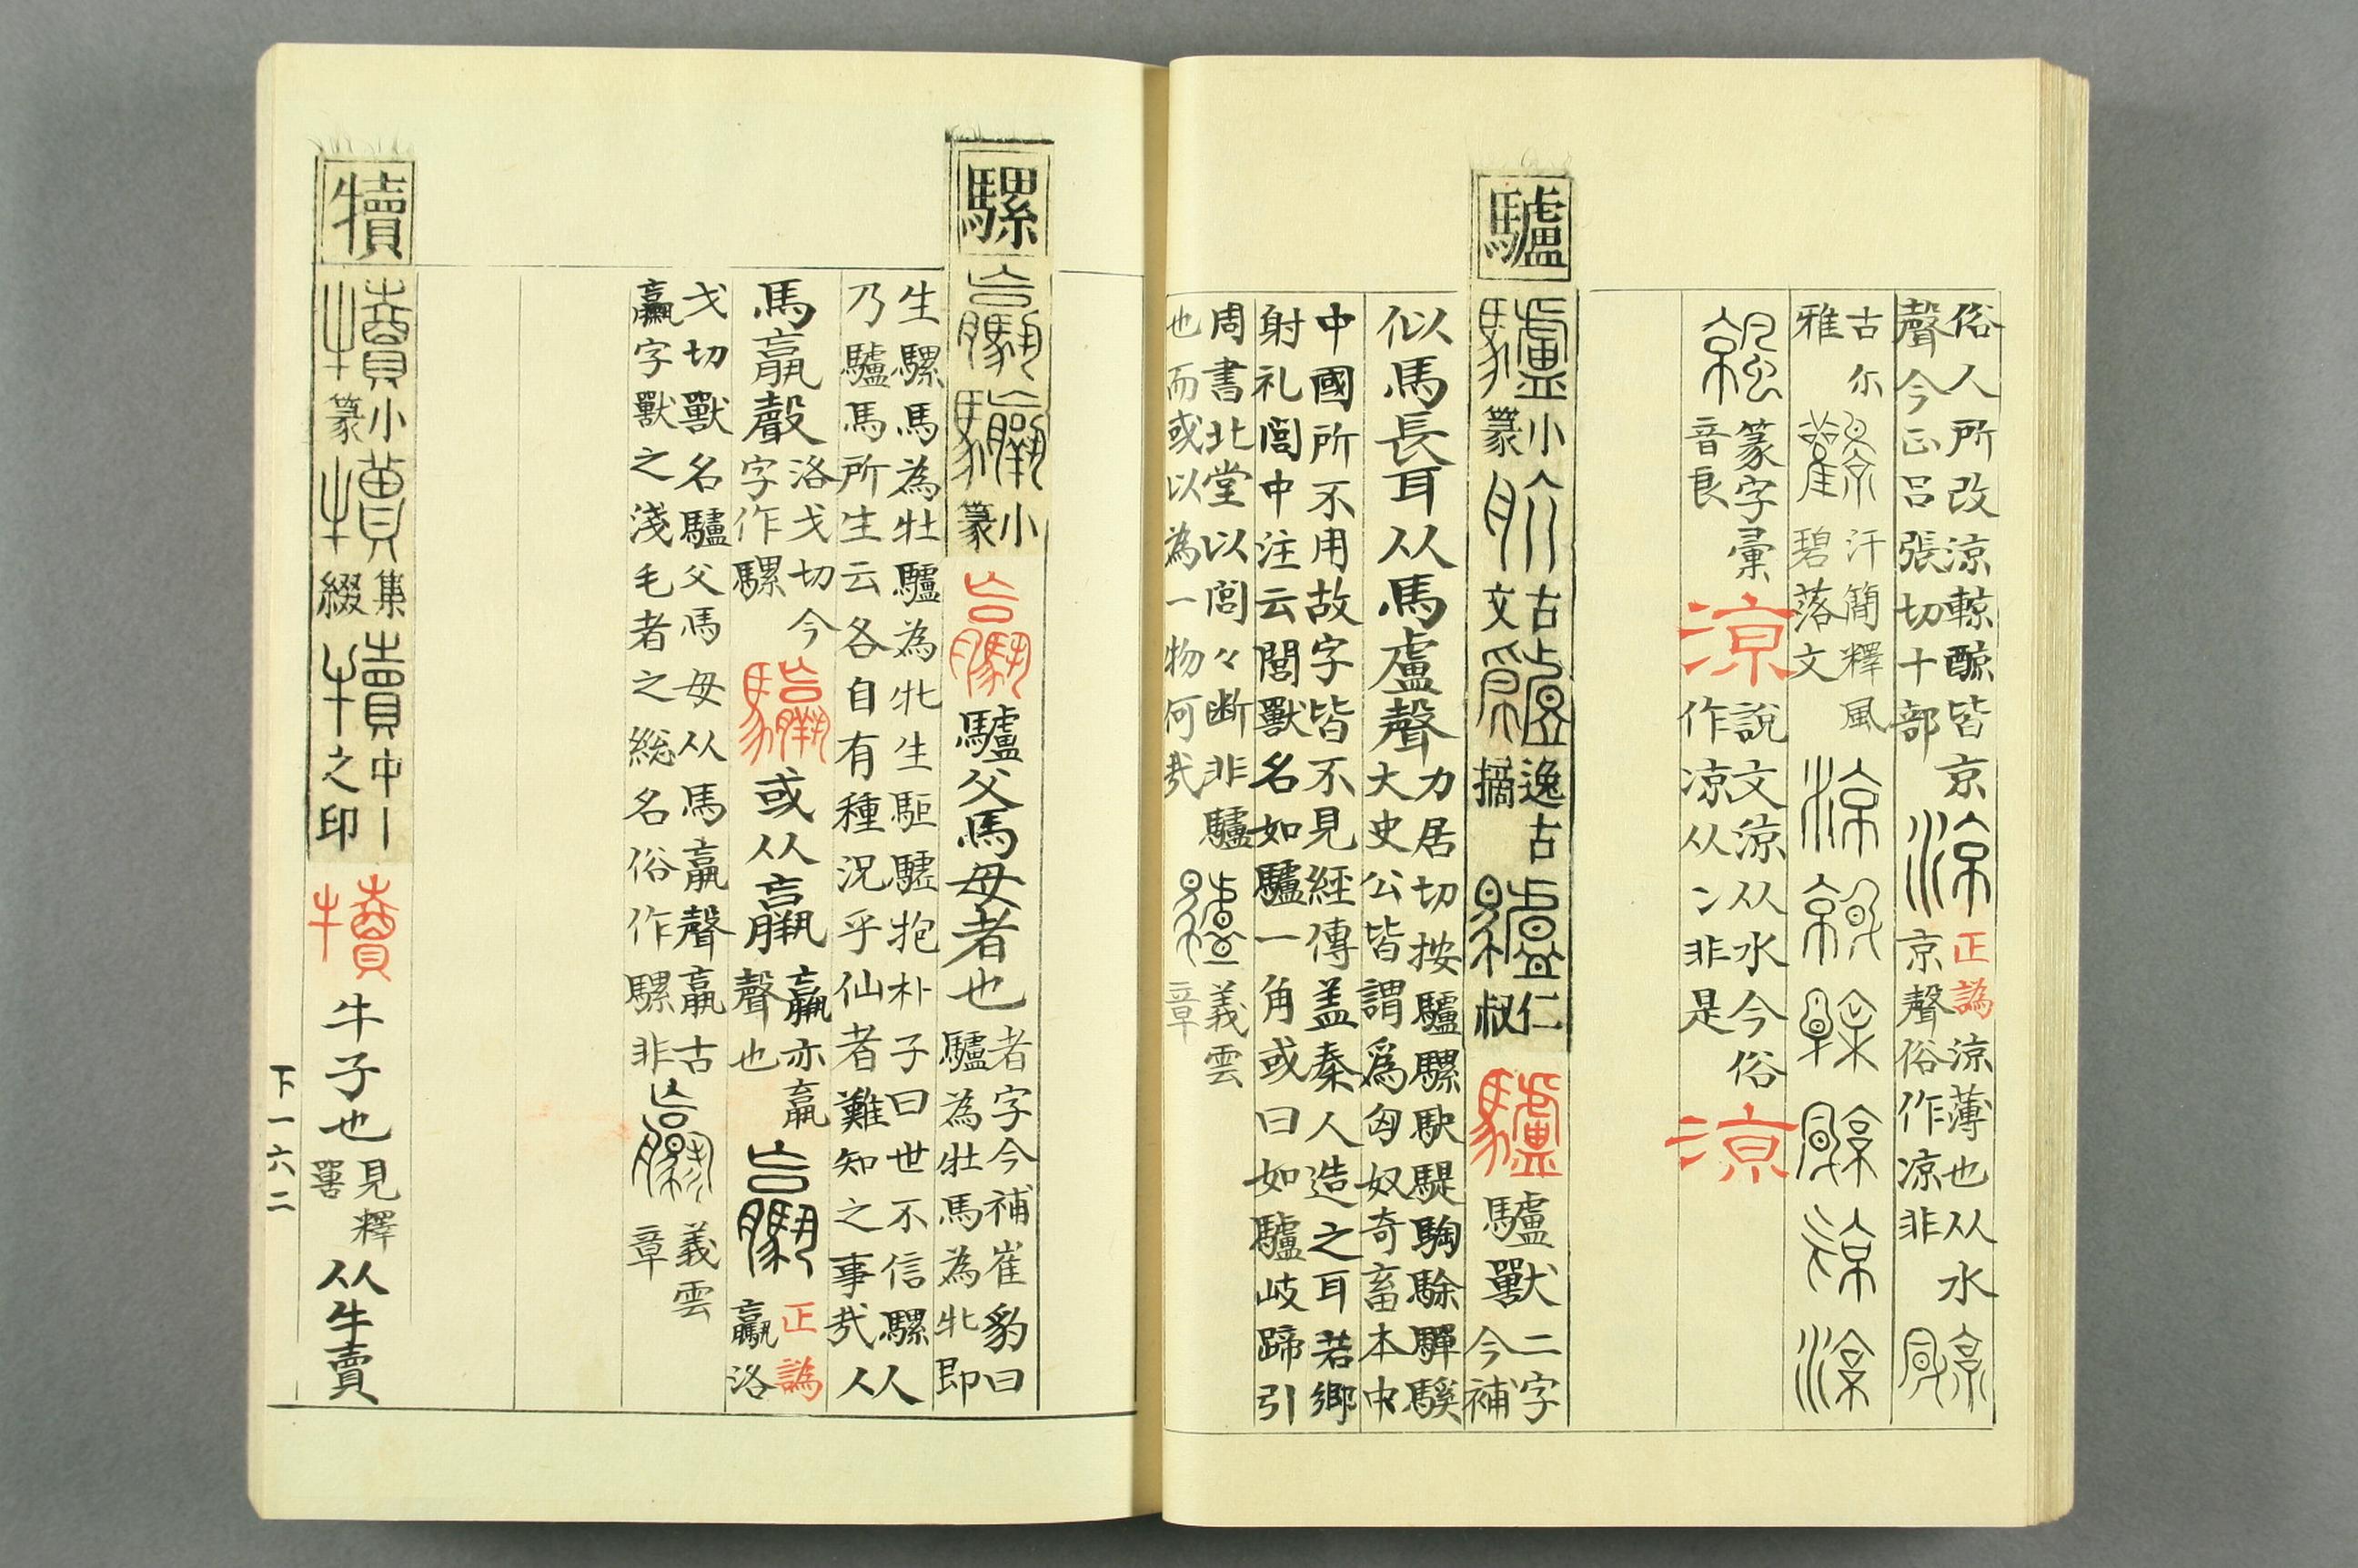 俗人所改涼輬醕皆京
聲今正呂張切十部
正譌
涼薄也从水
京聲俗作凉非
古尒
雅
汗簡釋風
碧落文
篆字彙
音良
涼
說文涼从水今俗
作凉从冫非是
涼
驢
小
篆
古
文
逸古
摘
仁
叔
驢
驢獸
二字
今補
似馬長耳从馬盧聲
力居切按驢騾駃騠騊駼驒騱
大史公皆謂爲匈奴奇畜本中
中國所不用故字皆不見經傳盖秦人造之耳若鄉
射礼閭中注云閭獸名如驢一角或曰如驢岐蹄引
周書北堂以閭々断非驢
也而或以為一物何㦲
義雲
章
騾
小
篆
驢父馬母者也
者字今補崔豹曰
驢為牡馬為牝即
生騾馬為牡驢為牝生駏驉抱朴子曰世不信騾人
乃驢馬所生云各自有種況乎仙者難知之事㦲
从
馬𦝠聲
洛戈切今
字作騾
或从𦝠
聲也
正譌
洛
戈切獸名驢父馬母从馬𦝠聲𦝠古
𦝠字獸之淺毛者之総名俗作騾非
義雲
章
犢
小
篆
集
綴
中丨
之印
犢
牛子也
見釋
嘼
从牛賣
下一六二